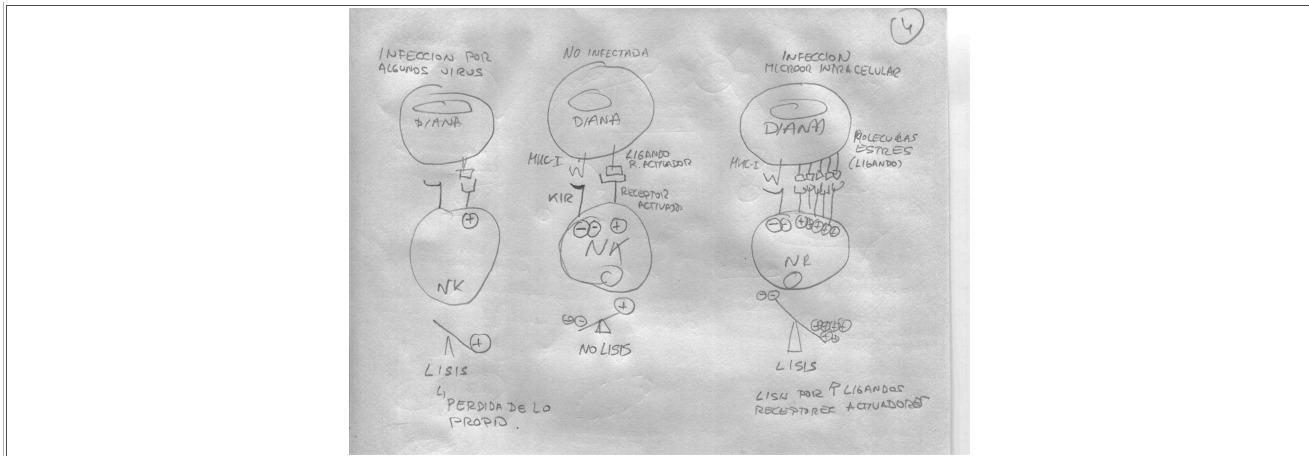 4
INFECCION POR
ALGUNOS VIRUS
DIANA
+
NK
+
LISIS
PERDIDA DE LO
PROPIO.
NO INFECTADA
DIANA
MHC-I
LIGANDO
R. ACTIVADOR
KIR
RECEPTOR
- - +
NK
- - +
NO LISIS
INFECCION
INTRACELULAR
DIANA
MOLECULAS
ESTRES
(LIGANDO)
MHC-I
NK
LISIS
LISIS POR ↑ LIGANDOS
RECEPTORES ACTIVADORES